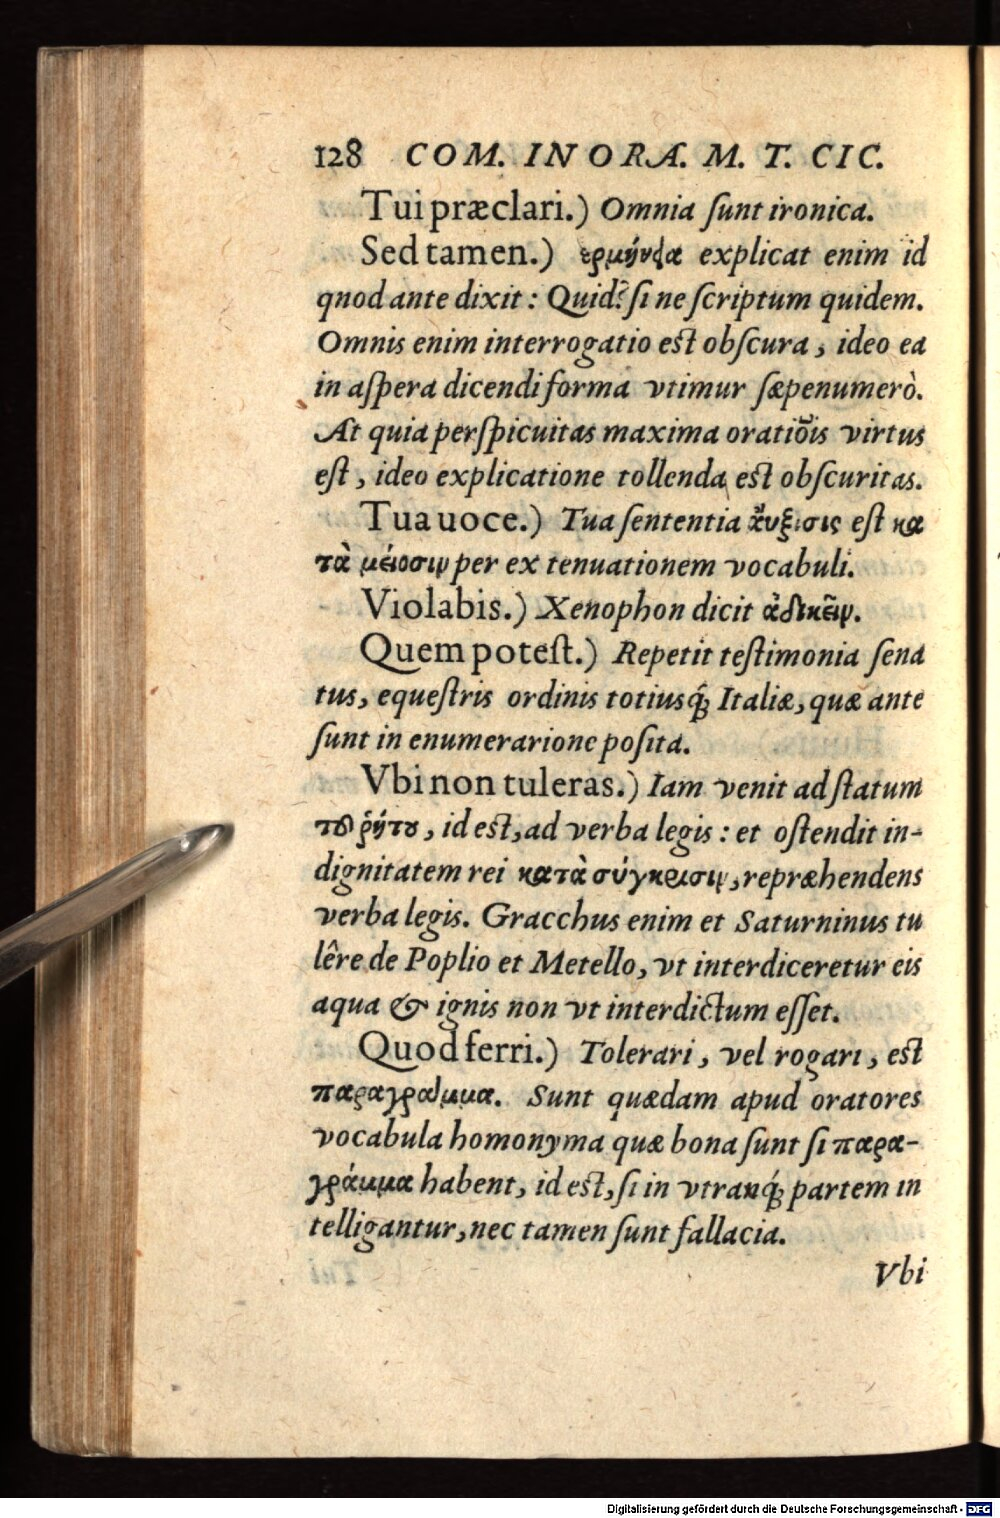 128 COM. IN ORA. M. T. CIC.
Tui præclari.) Omnia ſunt ironica.
Sed tamen.) ἑρμήνεια explicat enim id
qnod ante dixit: Quid? ſi ne ſcriptum quidem.
Omnis enim interrogatio est obſcura, ideo ea
in aſpera dicendi forma vtimur ſæpenumerò.
At quia perſpicuitas maxima oratiōis virtus
eſt, ideo explicatione tollenda est obſcuritas.
Tua uoce.) Tua ſententia ἄυξισις eſt κα
τὰ μείοσιν per ex tenuationem vocabuli.
Violabis.) Xenophon dicit ἀδικεῖν.
Quem poteſt.) Repetit teſtimonia ſena
tus, equeſtris ordinis totiusq́; Italiæ, quæ ante
ſunt in enumerarione poſita.
Vbi non tuleras.) Iam venit ad ſtatum
τοῦ ῥήτου, id est, ad verba legis: et oſtendit in-
dignitatem rei κατὰ σύγκρισιν, repræhendens
verba legis. Gracchus enim et Saturninus tu
lêre de Poplio et Metello, vt interdiceretur eis
aqua & ignis non vt interdictum eſſet.
Quod ferri.) Tolerari, vel rogari, est
παραγράμμα. Sunt quædam apud oratores
vocabula homonyma quæ bona ſunt ſi παρα-
γράμμα habent, id est, ſi in vtranq́; partem in
telligantur, nec tamen ſunt fallacia.
Vbi
Digitalisierung gefördert durch die Deutsche Forschungsgemeinschaft - DFG